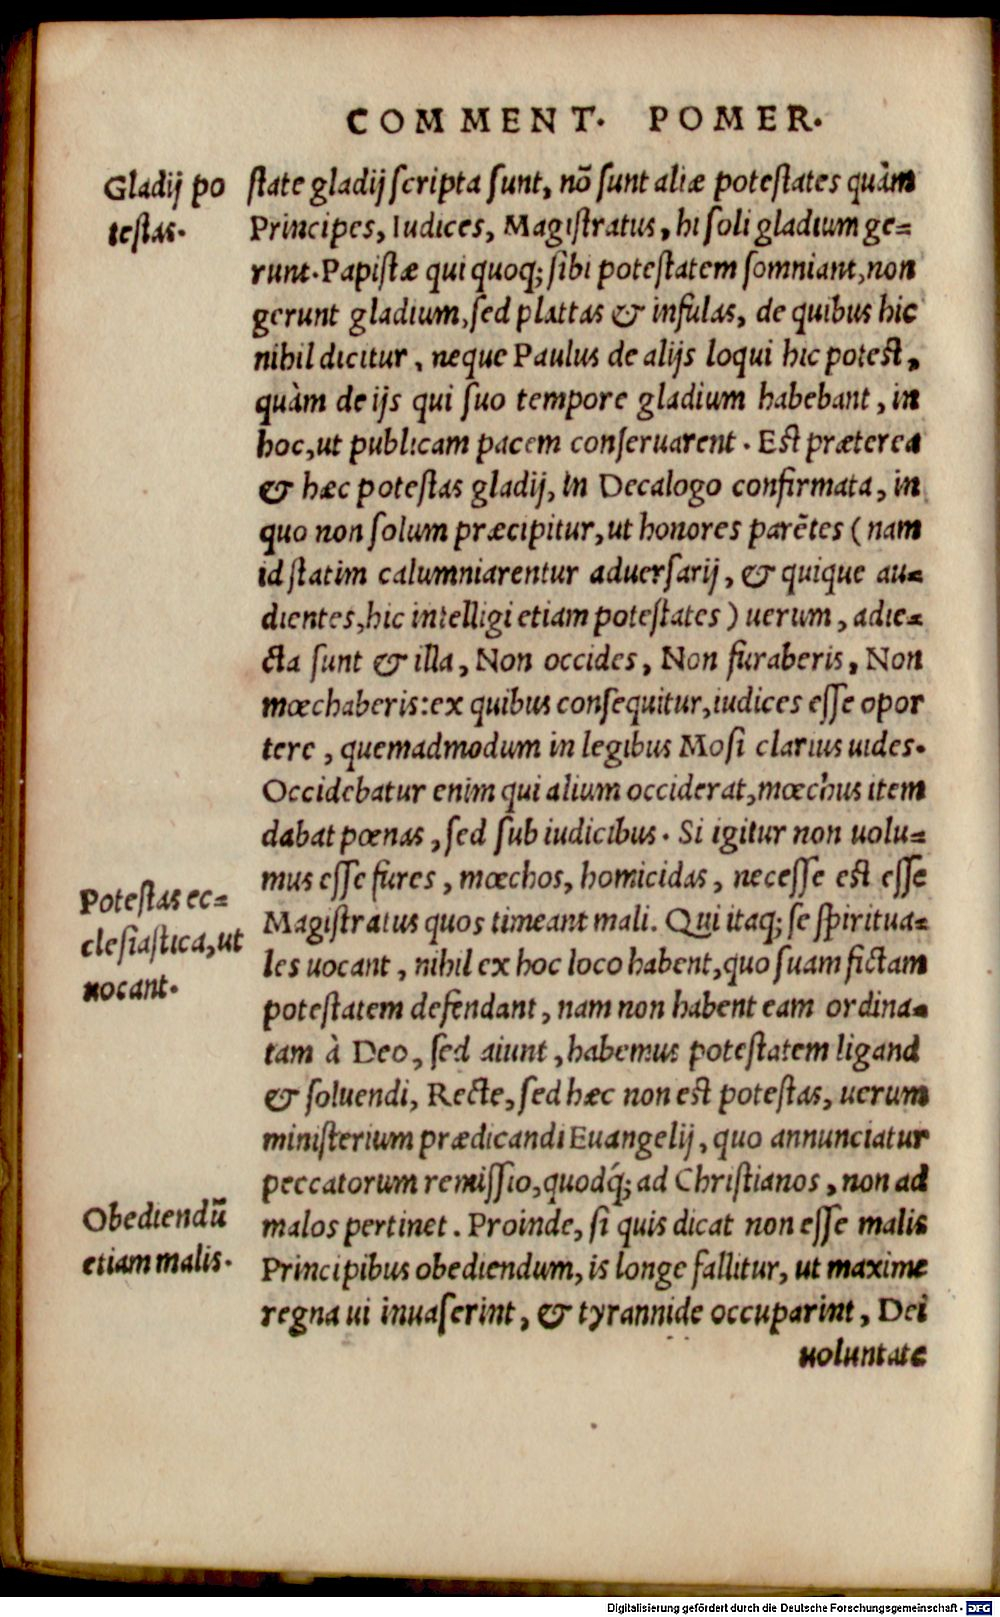 COMMENT. POMER.
Gladij po
testas.
state gladij scripta sunt, nõ sunt aliæ potestates quàm
Principes, Iudices, Magistratus, hi soli gladium ge=
runt. Papistæ qui quoq; sibi potestatem somniant, non
gerunt gladium, sed plattas & infulas, de quibus hic
nihil dicitur, neque Paulus de alijs loqui hic potest,
quàm de ijs qui suo tempore gladium habebant, in
hoc, ut publicam pacem conseruarent. Est præterea
& hæc potestas gladij, in Decalogo confirmata, in
quo non solum præcipitur, ut honores parẽtes (nam
id statim calumniarentur aduersarij, & quique au=
dientes, hic intelligi etiam potestates) uerum, adie=
cta sunt & illa, Non occides, Non furaberis, Non
mœchaberis: ex quibus consequitur, iudices esse opor
tere, quemadmodum in legibus Mosi clarius uides.
Occidebatur enim qui alium occiderat, mœchus item
dabat pœnas, sed sub iudicibus. Si igitur non uolu=
mus esse fures, mœchos, homicidas, necesse est esse
Magistratus quos timeant mali. Qui itaq; se spiritua=
les uocant, nihil ex hoc loco habent, quo suam fictam
potestatem defendant, nam non habent eam ordina=
tam à Deo, sed aiunt, habemus potestatem ligand
& soluendi, Recte, sed hæc non est potestas, uerum
ministerium prædicandi Euangelij, quo annunciatur
peccatorum remissio, quodq́; ad Christianos, non ad
malos pertinet. Proinde, si quis dicat non esse malis
Principibus obediendum, is longe fallitur, ut maxime
regna ui inuaserint, & tyrannide occuparint, Dei
uoluntate
Potestas ec=
clesiastica, ut
uocant.
Obediendũ
etiam malis.
Digitalisierung gefördert durch die Deutsche Forschungsgemeinschaft - DFG